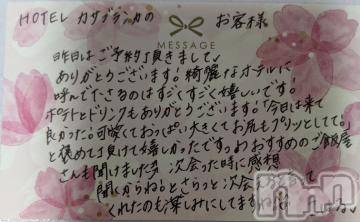 HOTEL カサブランカの お客様
MESSAGE
昨日はご予約頂きまして
ありがとうございます。綺麗なホテルに
呼んで下さるのはすごくすごく嬉しいです。
ポテトとドリンクもありがとうございます。「今日は来て
良かった。可愛くておっぱい大きくてお尻もプリッとしてて。」
と褒めて頂けて嬉しかったです。おすすめのご飯屋
さんも聞けました 次会った時に感想
聞くからね。とさらっと次会う
くれたのも楽しみにしてます